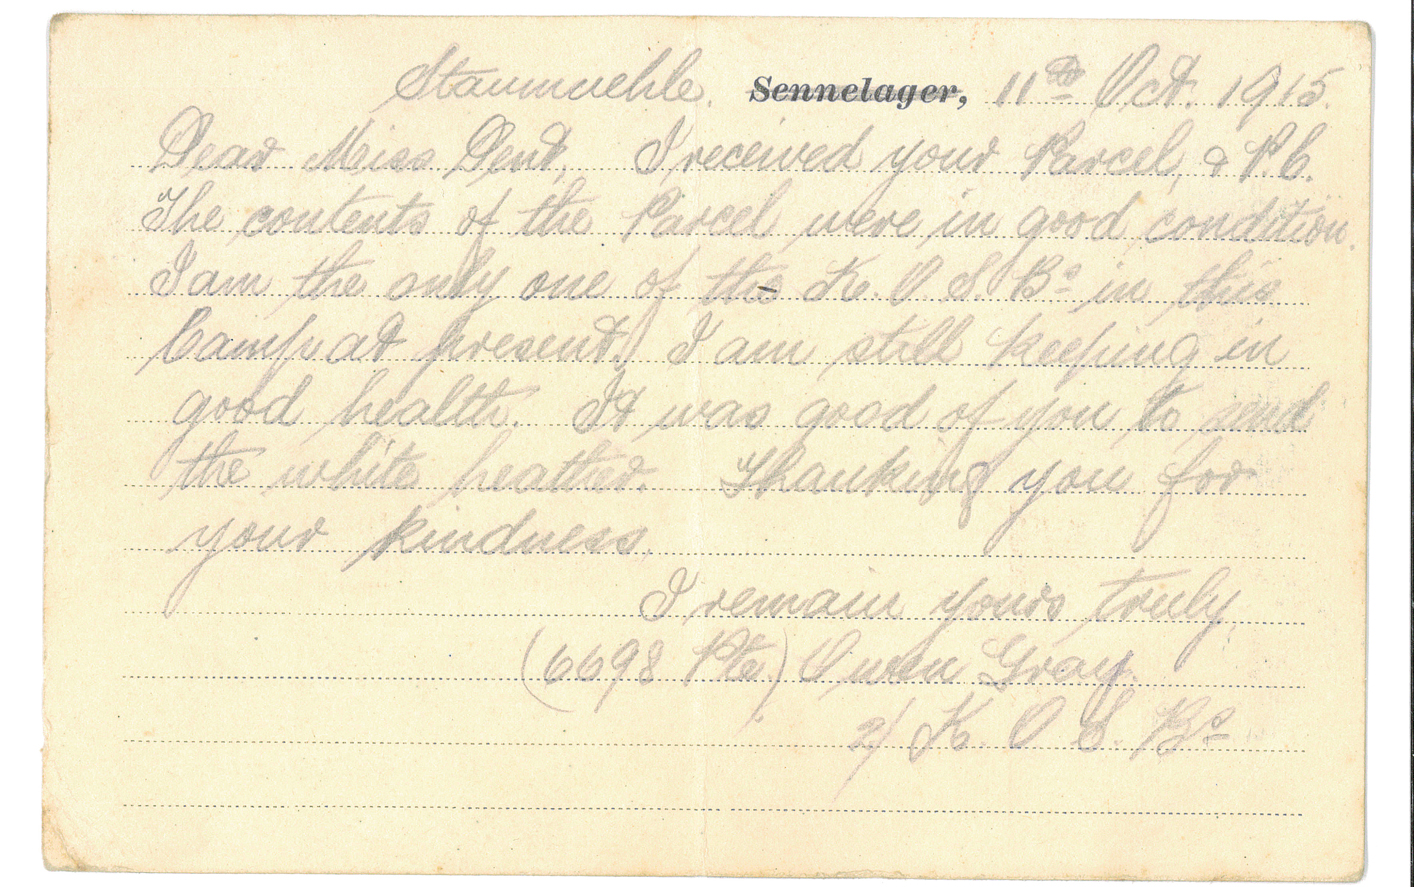 Staumuehle. Sennelager, 11th Oct. 1915.
Dear Miss Dent, I received your Parcel, & P.C.
The contents of the Parcel were in good condition.
I am the only one of the K.O.S.Bs in this
Camp at present. I am still keeping in
good health. It was good of you to send
the white heather. Thanking you for
your kindness.
I remain yours truly,
(6698 Pte.) Owen Gray.
2/ K.O.S.Bs